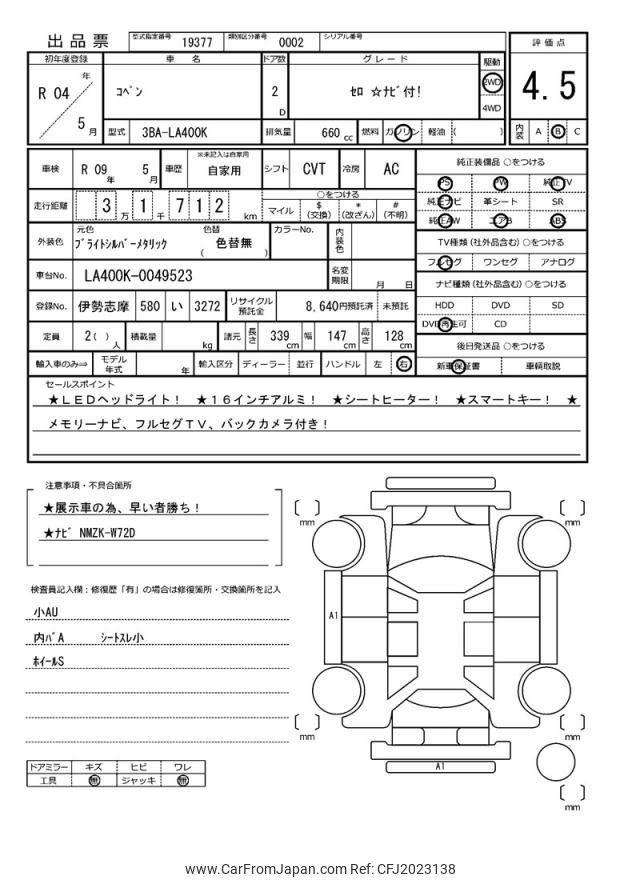 出品票 型式指定番号 19377 類別区分番号 0002 シリアル番号
評価点
4.5
内装 A B C
初年度登録 車名 ドア数 グレード 駆動
R 04 年 5 月 コペン 2 D セロ ☆ナビ付! 2WD 4WD
型式 3BA-LA400K 排気量 660 cc 燃料 ガソリン 軽油 ( )
車検 R 09 年 5 月 車歴 ※未記入は自家用 自家用 シフト CVT 冷房 AC
走行距離 3 万 1 千 7 1 2 km ○をつける
マイル $ (交換) * (改ざん) # (不明)
外装色 元色 ブライトシルバーメタリック 色替 ( 色替無 ) カラーNo. 内装色
車台No. LA400K-0049523 名変期限 月 日
登録No. 伊勢志摩 580 い 3272 リサイクル預託金 8,640円預託済 未預託
定員 2 ( ) 人 積載量 kg 諸元 長さ 339 cm 幅 147 cm 高さ 128 cm
輸入車のみ⇒ モデル年式 年 輸入区分 ディーラー 並行 ハンドル 左 右
純正装備品 ○をつける
PS PW 純正TV
純正ナビ 革シート SR
純正AW エアB ABS
TV種類 (社外品含む) ○をつける
フルセグ ワンセグ アナログ
ナビ種類 (社外品含む) ○をつける
HDD DVD SD
DVD再生可 CD
後日発送品 ○をつける
新車保証書 車輌取説
セールスポイント
★LEDヘッドライト! ★16インチアルミ! ★シートヒーター! ★スマートキー! ★
メモリーナビ、フルセグTV、バックカメラ付き!
注意事項・不具合箇所
★展示車の為、早い者勝ち!
★ナビ NMZK-W72D
検査員記入欄:修復歴「有」の場合は修復箇所・交換箇所を記入
小AU
内バA シートスレ小
ホイールS
ドアミラー キズ ヒビ ワレ
工具 無 ジャッキ 無
mm mm
A1
mm mm
A1
mm
www.CarFromJapan.com Ref: CFJ2023138